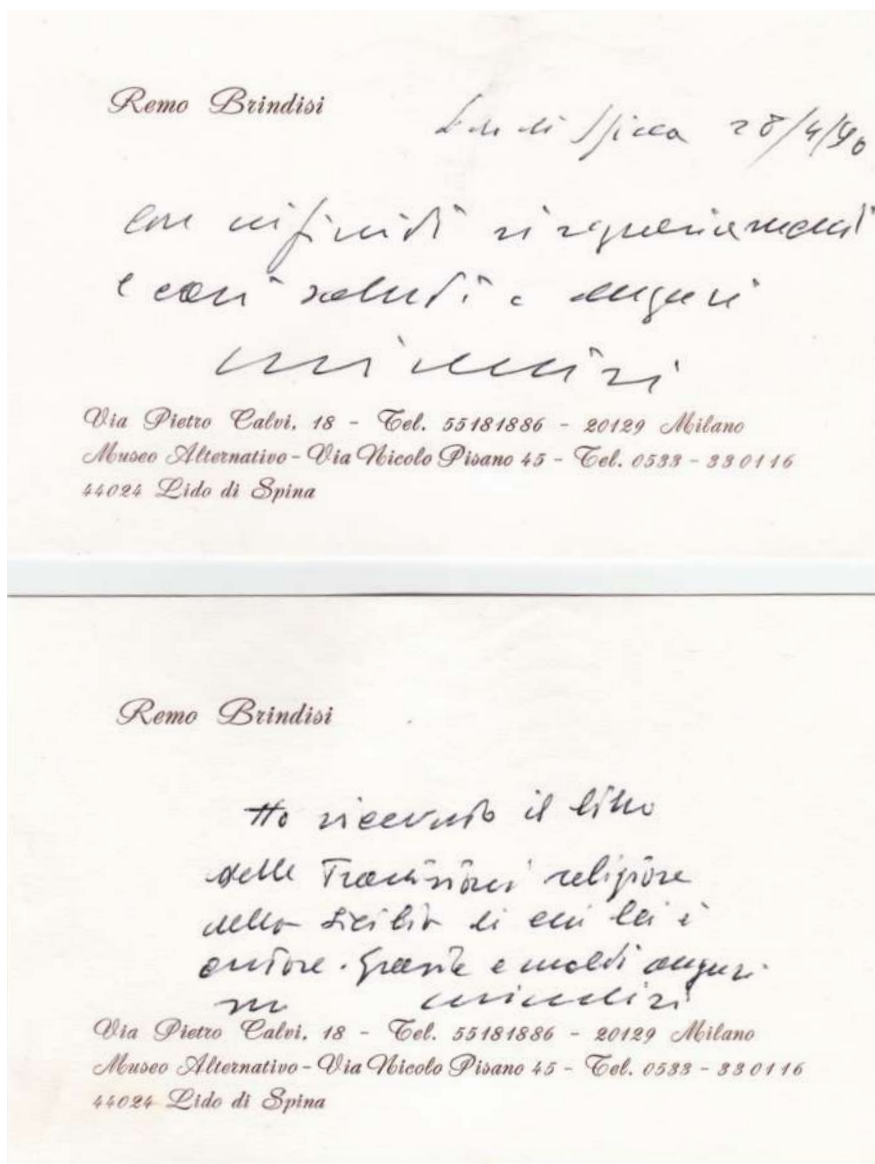 Remo Brindisi
Lido di Spina 28/4/90
Con infiniti ringraziamenti
e cari saluti e auguri
Via Pietro Calvi, 18 - Tel. 55181886 - 20129 Milano
Museo Alternativo - Via Nicolo Pisano 45 - Tel. 0533 - 330116
44024 Lido di Spina
Remo Brindisi
Ho ricevuto il libro
delle Tradizioni religiose
della Sicilia di cui lei è
autore. Grazie e molti auguri
Via Pietro Calvi, 18 - Tel. 55181886 - 20129 Milano
Museo Alternativo - Via Nicolo Pisano 45 - Tel. 0533 - 330116
44024 Lido di Spina